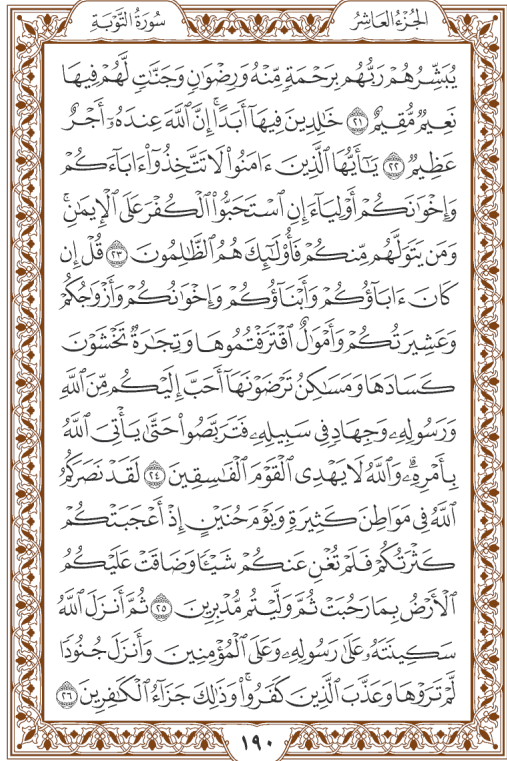 الجُزْءُ العَاشِرُ سُورَةُ التَّوْبَةِ
يُبَشِّرُهُمْ رَبُّهُم بِرَحْمَةٍ مِّنْهُ وَرِضْوَٰنٍ وَجَنَّٰتٍ لَّهُمْ فِيهَا
نَعِيمٌ مُّقِيمٌ ٢١ خَٰلِدِينَ فِيهَآ أَبَدًاۚ إِنَّ ٱللَّهَ عِندَهُۥٓ أَجْرٌ
عَظِيمٌ ٢٢ يَٰٓأَيُّهَا ٱلَّذِينَ ءَامَنُوا۟ لَا تَتَّخِذُوٓا۟ ءَابَآءَكُمْ
وَإِخْوَٰنَكُمْ أَوْلِيَآءَ إِنِ ٱسْتَحَبُّوا۟ ٱلْكُفْرَ عَلَى ٱلْإِيمَٰنِۚ
وَمَن يَتَوَلَّهُم مِّنكُمْ فَأُو۟لَٰٓئِكَ هُمُ ٱلظَّٰلِمُونَ ٢٣ قُلْ إِن
كَانَ ءَابَآؤُكُمْ وَأَبْنَآؤُكُمْ وَإِخْوَٰنُكُمْ وَأَزْوَٰجُكُمْ
وَعَشِيرَتُكُمْ وَأَمْوَٰلٌ ٱقْتَرَفْتُمُوهَا وَتِجَٰرَةٌ تَخْشَوْنَ
كَسَادَهَا وَمَسَٰكِنُ تَرْضَوْنَهَآ أَحَبَّ إِلَيْكُم مِّنَ ٱللَّهِ
وَرَسُولِهِۦ وَجِهَادٍ فِى سَبِيلِهِۦ فَتَرَبَّصُوا۟ حَتَّىٰ يَأْتِىَ ٱللَّهُ
بِأَمْرِهِۦۗ وَٱللَّهُ لَا يَهْدِى ٱلْقَوْمَ ٱلْفَٰسِقِينَ ٢٤ لَقَدْ نَصَرَكُمُ
ٱللَّهُ فِى مَوَاطِنَ كَثِيرَةٍۙ وَيَوْمَ حُنَيْنٍۙ إِذْ أَعْجَبَتْكُمْ
كَثْرَتُكُمْ فَلَمْ تُغْنِ عَنكُمْ شَيْـًٔا وَضَاقَتْ عَلَيْكُمُ
ٱلْأَرْضُ بِمَا رَحُبَتْ ثُمَّ وَلَّيْتُم مُّدْبِرِينَ ٢٥ ثُمَّ أَنزَلَ ٱللَّهُ
سَكِينَتَهُۥ عَلَىٰ رَسُولِهِۦ وَعَلَى ٱلْمُؤْمِنِينَ وَأَنزَلَ جُنُودًا
لَّمْ تَرَوْهَا وَعَذَّبَ ٱلَّذِينَ كَفَرُوا۟ۚ وَذَٰلِكَ جَزَآءُ ٱلْكَٰفِرِينَ ٢٦
١٩٠